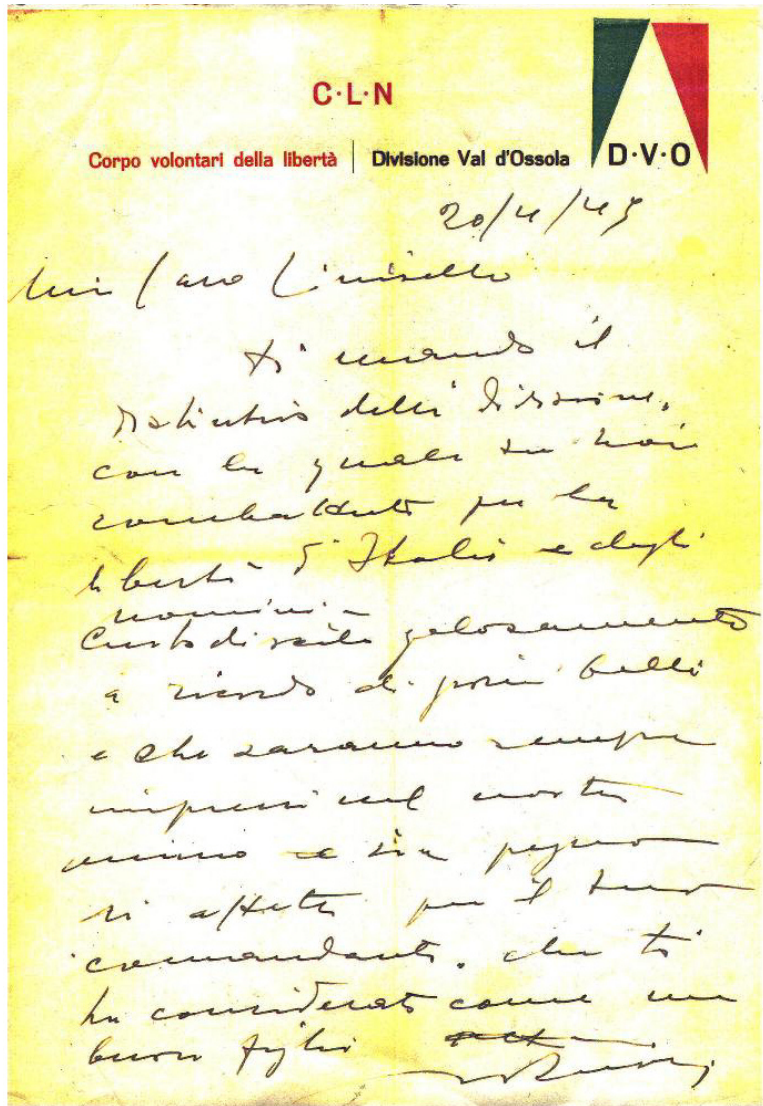 C·L·N
Corpo volontari della libertà | Divisione Val d'Ossola
D·V·O
20/4/45
Mio Caro Cinisello
ti mando il
distintivo della Divisione,
con la quale tu hai
combattuto per la
libertà d'Italia e degli
uomini -
Custodiscilo gelosamente
a ricordo di giorni belli
e che saranno sempre
impressi nel nostro
animo e sia pegno
di affetto per il tuo
comandante, che ti
ha considerato come un
buon figlio